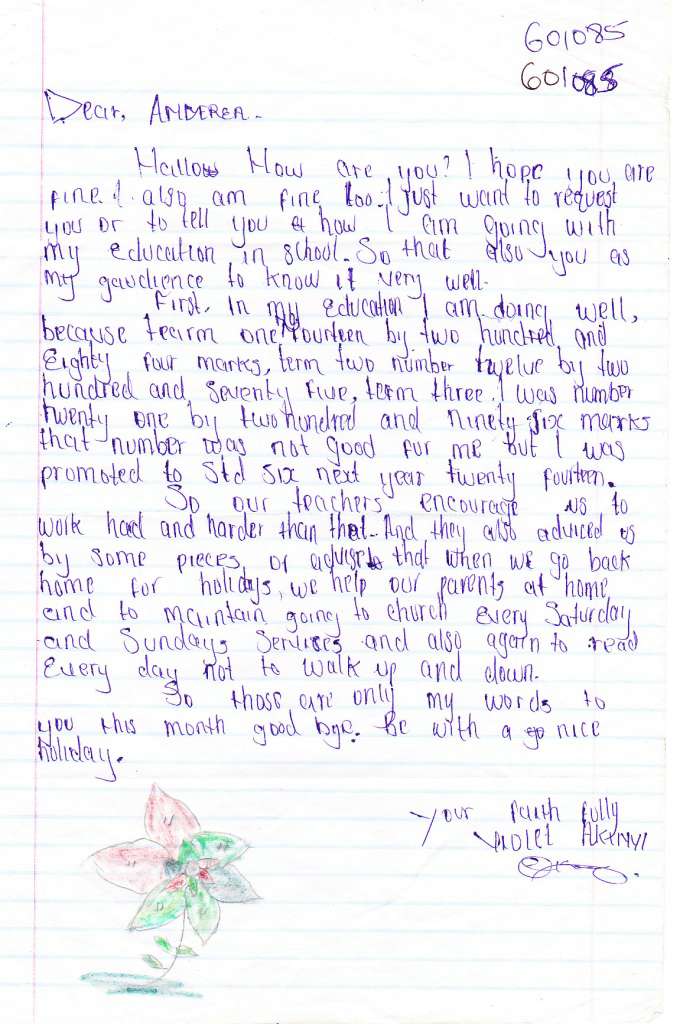 601085
601085
Dear, AMDEREA.
Hallow How are you? I hope you are
fine. I also am fine too. I just want to request
you or to tell you how I am going with
my education in school. So that also you as
my gawdience to know it very well.
First, In my education I am doing well,
because tearm one No fourteen by two hundred and
Eighty four marks, term two number twelve by two
hundred and seventy five, term three I was number
twenty one by two hundred and ninety six marks
that number was not good for me but I was
promoted to Std six next year twenty fourteen.
So our teachers encourage us to
work had and harder than that. And they also adviced us
by some pieces of that when we go back
home for holidays, we help our parents at home
and to maintain going to church Every Saturday
and Sundays Services and also again to read
Every day not to walk up and down.
So those are only my words to
you this month good bye. Be with a nice
holiday.
Your faith fully
VIOLET AKINYI